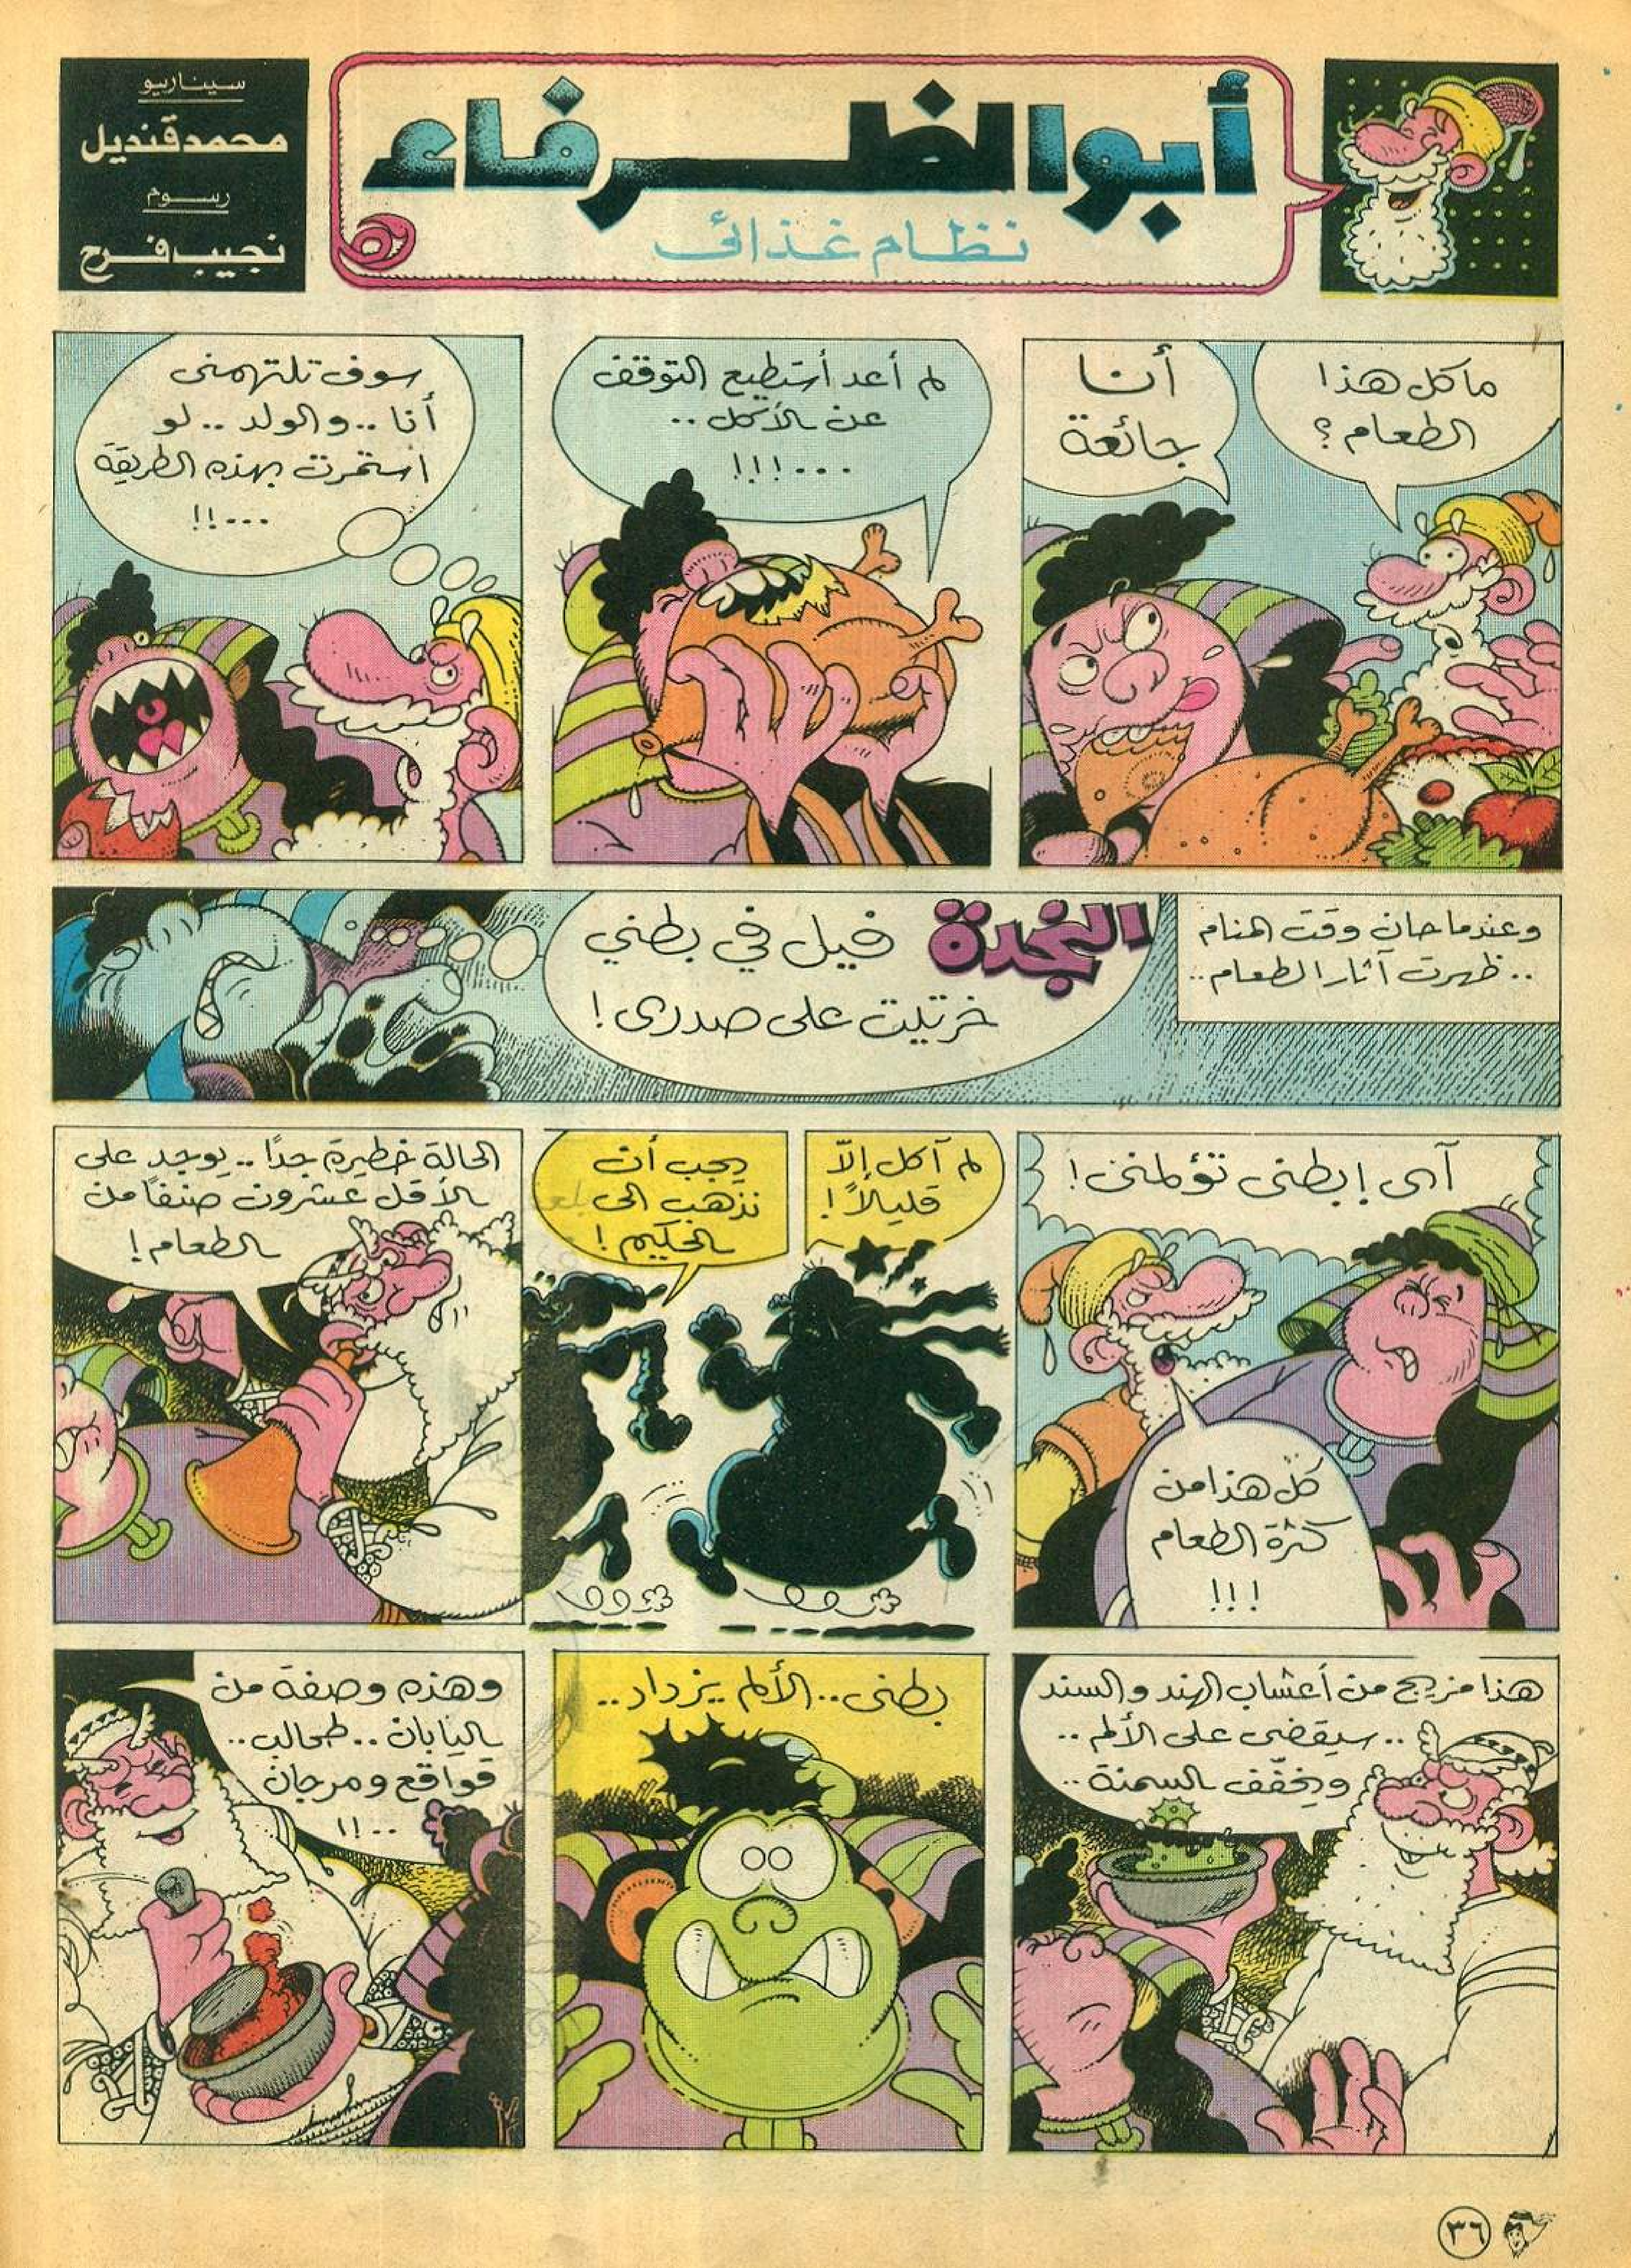 أبو الظرفاء
نظام غذائى
سيناريو
محمد قنديل
رسوم
نجيب فرح
ما كل هذا
الطعام ؟
أنا
جائعة
لم أعد أستطيع التوقف
عن الأكل ..
...!!!
سوف تلتهمنى
أنا .. والولد .. لو
استمرت بهذه الطريقة
...!!
وعندما حان وقت المنام
.. ظهرت آثار الطعام ..
النجدة فيل في بطني
خرتيت على صدرى !
آى ! بطنى تؤلمنى !
كل هذا من
كثرة الطعام
!!!
لم آكل إلاّ
قليلاً !
يجب أن
نذهب الى
الحكيم !
الحالة خطيرة جدًا .. يوجد على
الأقل عشرون صنفًا من
الطعام !
هذا مزيج من أعشاب الهند والسند
.. سيقضى على الألم ..
ويخفّف السمنة ..
بطنى .. الألم يزداد ..
وهذه وصفة من
اليابان .. طحالب ..
قواقع ومرجان
..!!
٣٦